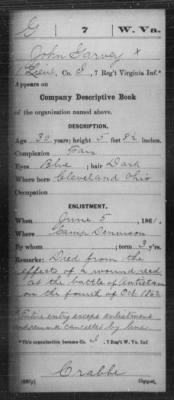 G 7 W. Va.
John Garvey x
1 Lieut, Co. I, 7 Reg't Virginia Inf.*
Appears on
Company Descriptive Book
of the organization named above.
DESCRIPTION.
Age 30 years; height 5 feet 8½ inches.
Complexion Fair
Eyes Blue; hair Dark
Where born Cleveland Ohio
Occupation
ENLISTMENT.
When June 5, 1861.
Where Camp Dennison
By whom ; term 3 y'rs.
Remarks: Died from the
effects of a wound recd
at the battle of Antietam
on the fourth of Oct 1862
Entire entry except enlistment
and remark cancelled by line.
*This organization became Co. I, 7 Reg't W. Va. Inf.
Crabbe
Copyist.